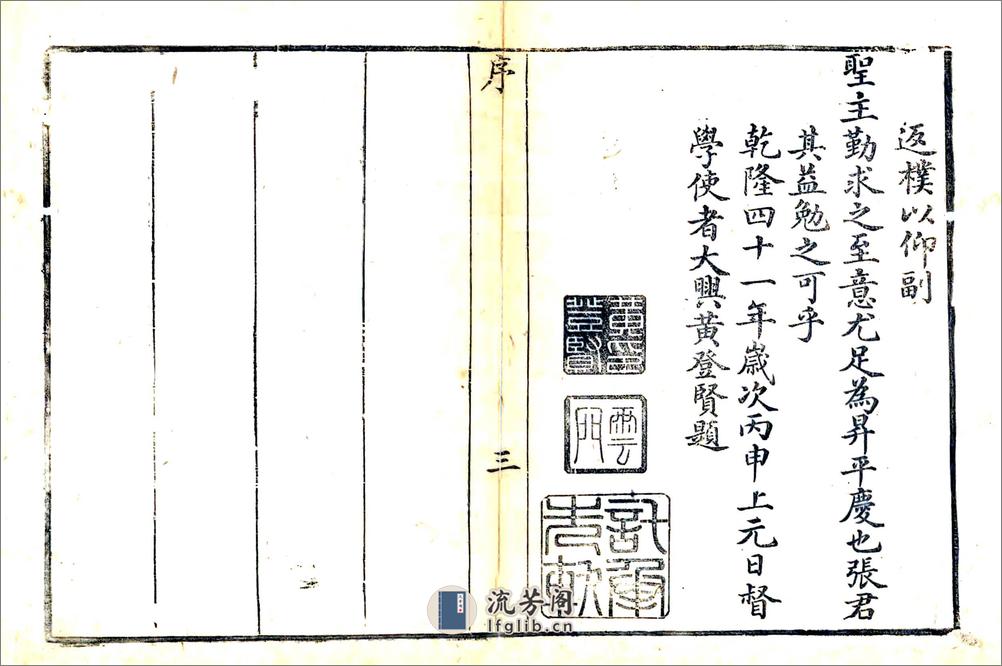 返樸以仰副
聖主勤求之至意尤足為昇平慶也張君
其益勉之可乎
乾隆四十一年歲次丙申上元日督
學使者大興黃登賢題
黃登賢
序
三
流芳阁
lfglib.cn